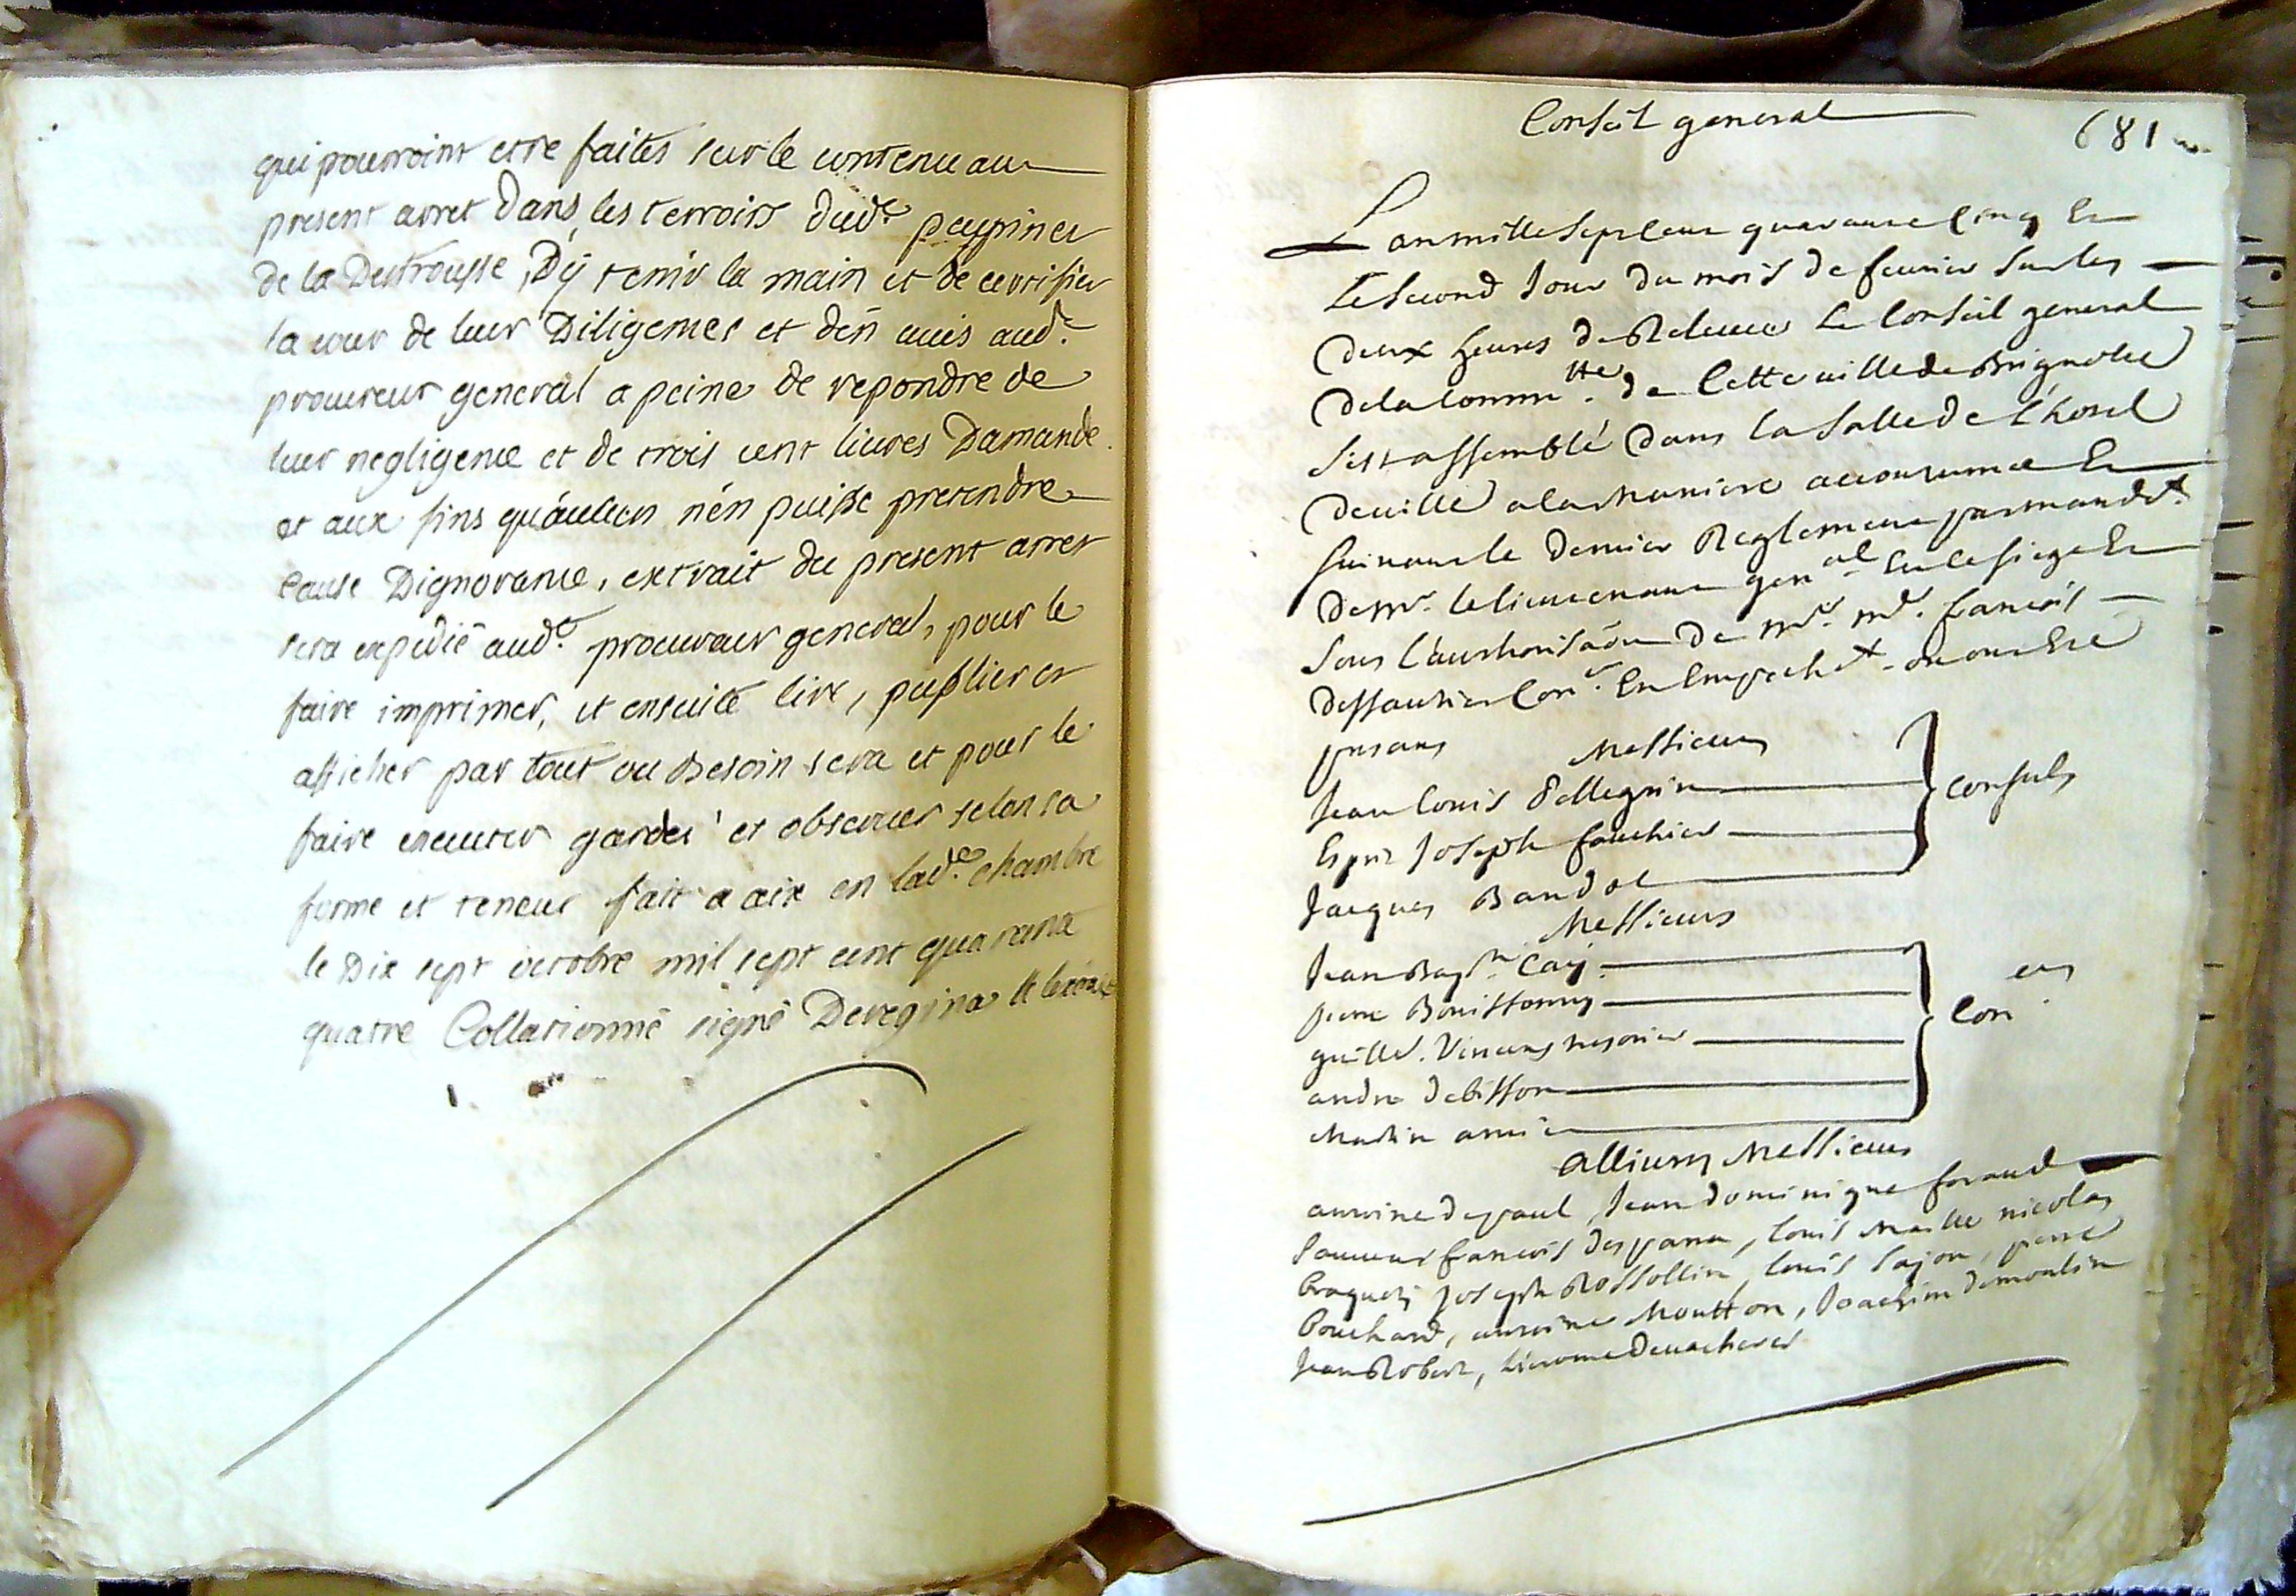 qui pourroint etre faites sur le contenu au
present arret Dans les terroirs dud.e peypines
de la Destrousse, D'ÿ tenir la main et de certifier
la cour de leur Diligences et d'en auis aud.e
procureur general a peine de repondre de
leur negligence et de trois cent liures Damande
et aux fins qu'aulcun n'en puisse pretendre
Cause Dignorance, extrait du present arret
sera expedié aud.e procureur general, pour le
faire imprimer, et ensuite lire, publier et
afficher par tout ou Besoin sera et pour le
faire executer garder et obseruer selon sa
forme et teneur fait a aix en lad.e chambre
le Dix sept octobre mil sept cent quarante
quatre Collationné signé Deregina
Conseil general
681
L'an mille Sept Cens quarante Cinq Et
Le Second Jour du mois de feurier Sur les
Deux heures de Releuée Le Conseil general
De la Commu.tté de Cette uille de Brignolle
S'est assemblé Dans la Salle de l'hotel
De uille a la maniere accoutumée Et
Suiuant le Dernier Reglement par mande.t
De m.r le lieutenant gen.al En le siege Et
Sous l'authorisaõn De m.e m.e francois
Dessautier Con.r En Empeche.t ou ont Eté
presans Messieurs
Jean Louis Pellegrin
Esprit Joseph fauchier
Jacques Bandol
Consuls
Messieurs
Jean Bap.te Caÿ
pierre Bouissony
guille. Vincens tresorier
andre Debisson
Martin amic
Con.ers
allieurs Messieurs
antoine Depaul, Jean Dominique foraud
Sauueur francois Desparra, Louis Maille nicolas
Braquety Joseph Rossollin, Louis Sajou, pierre
Bouchard, antoine Moutton, Joachim Demoulin
Jean Robert,